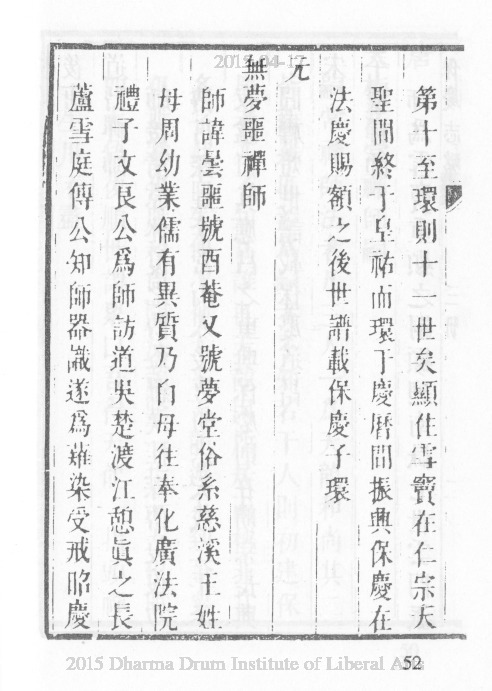 第十至環則十一世矣顯住雪竇在仁宗天
聖間終于皇祐而環于慶曆間振興保慶在
法慶賜額之後世譜載保慶子環
元
無夢噩禪師
師諱曇噩號酉菴又號夢堂俗系慈溪王姓
母周幼業儒有異質乃白母往奉化廣法院
禮子文良公為師訪道吳楚渡江憩眞之長
蘆雪庭傳公知師器識遂為薙染受戒昭慶
52
2015 Dharma Drum Institute of Liberal Arts